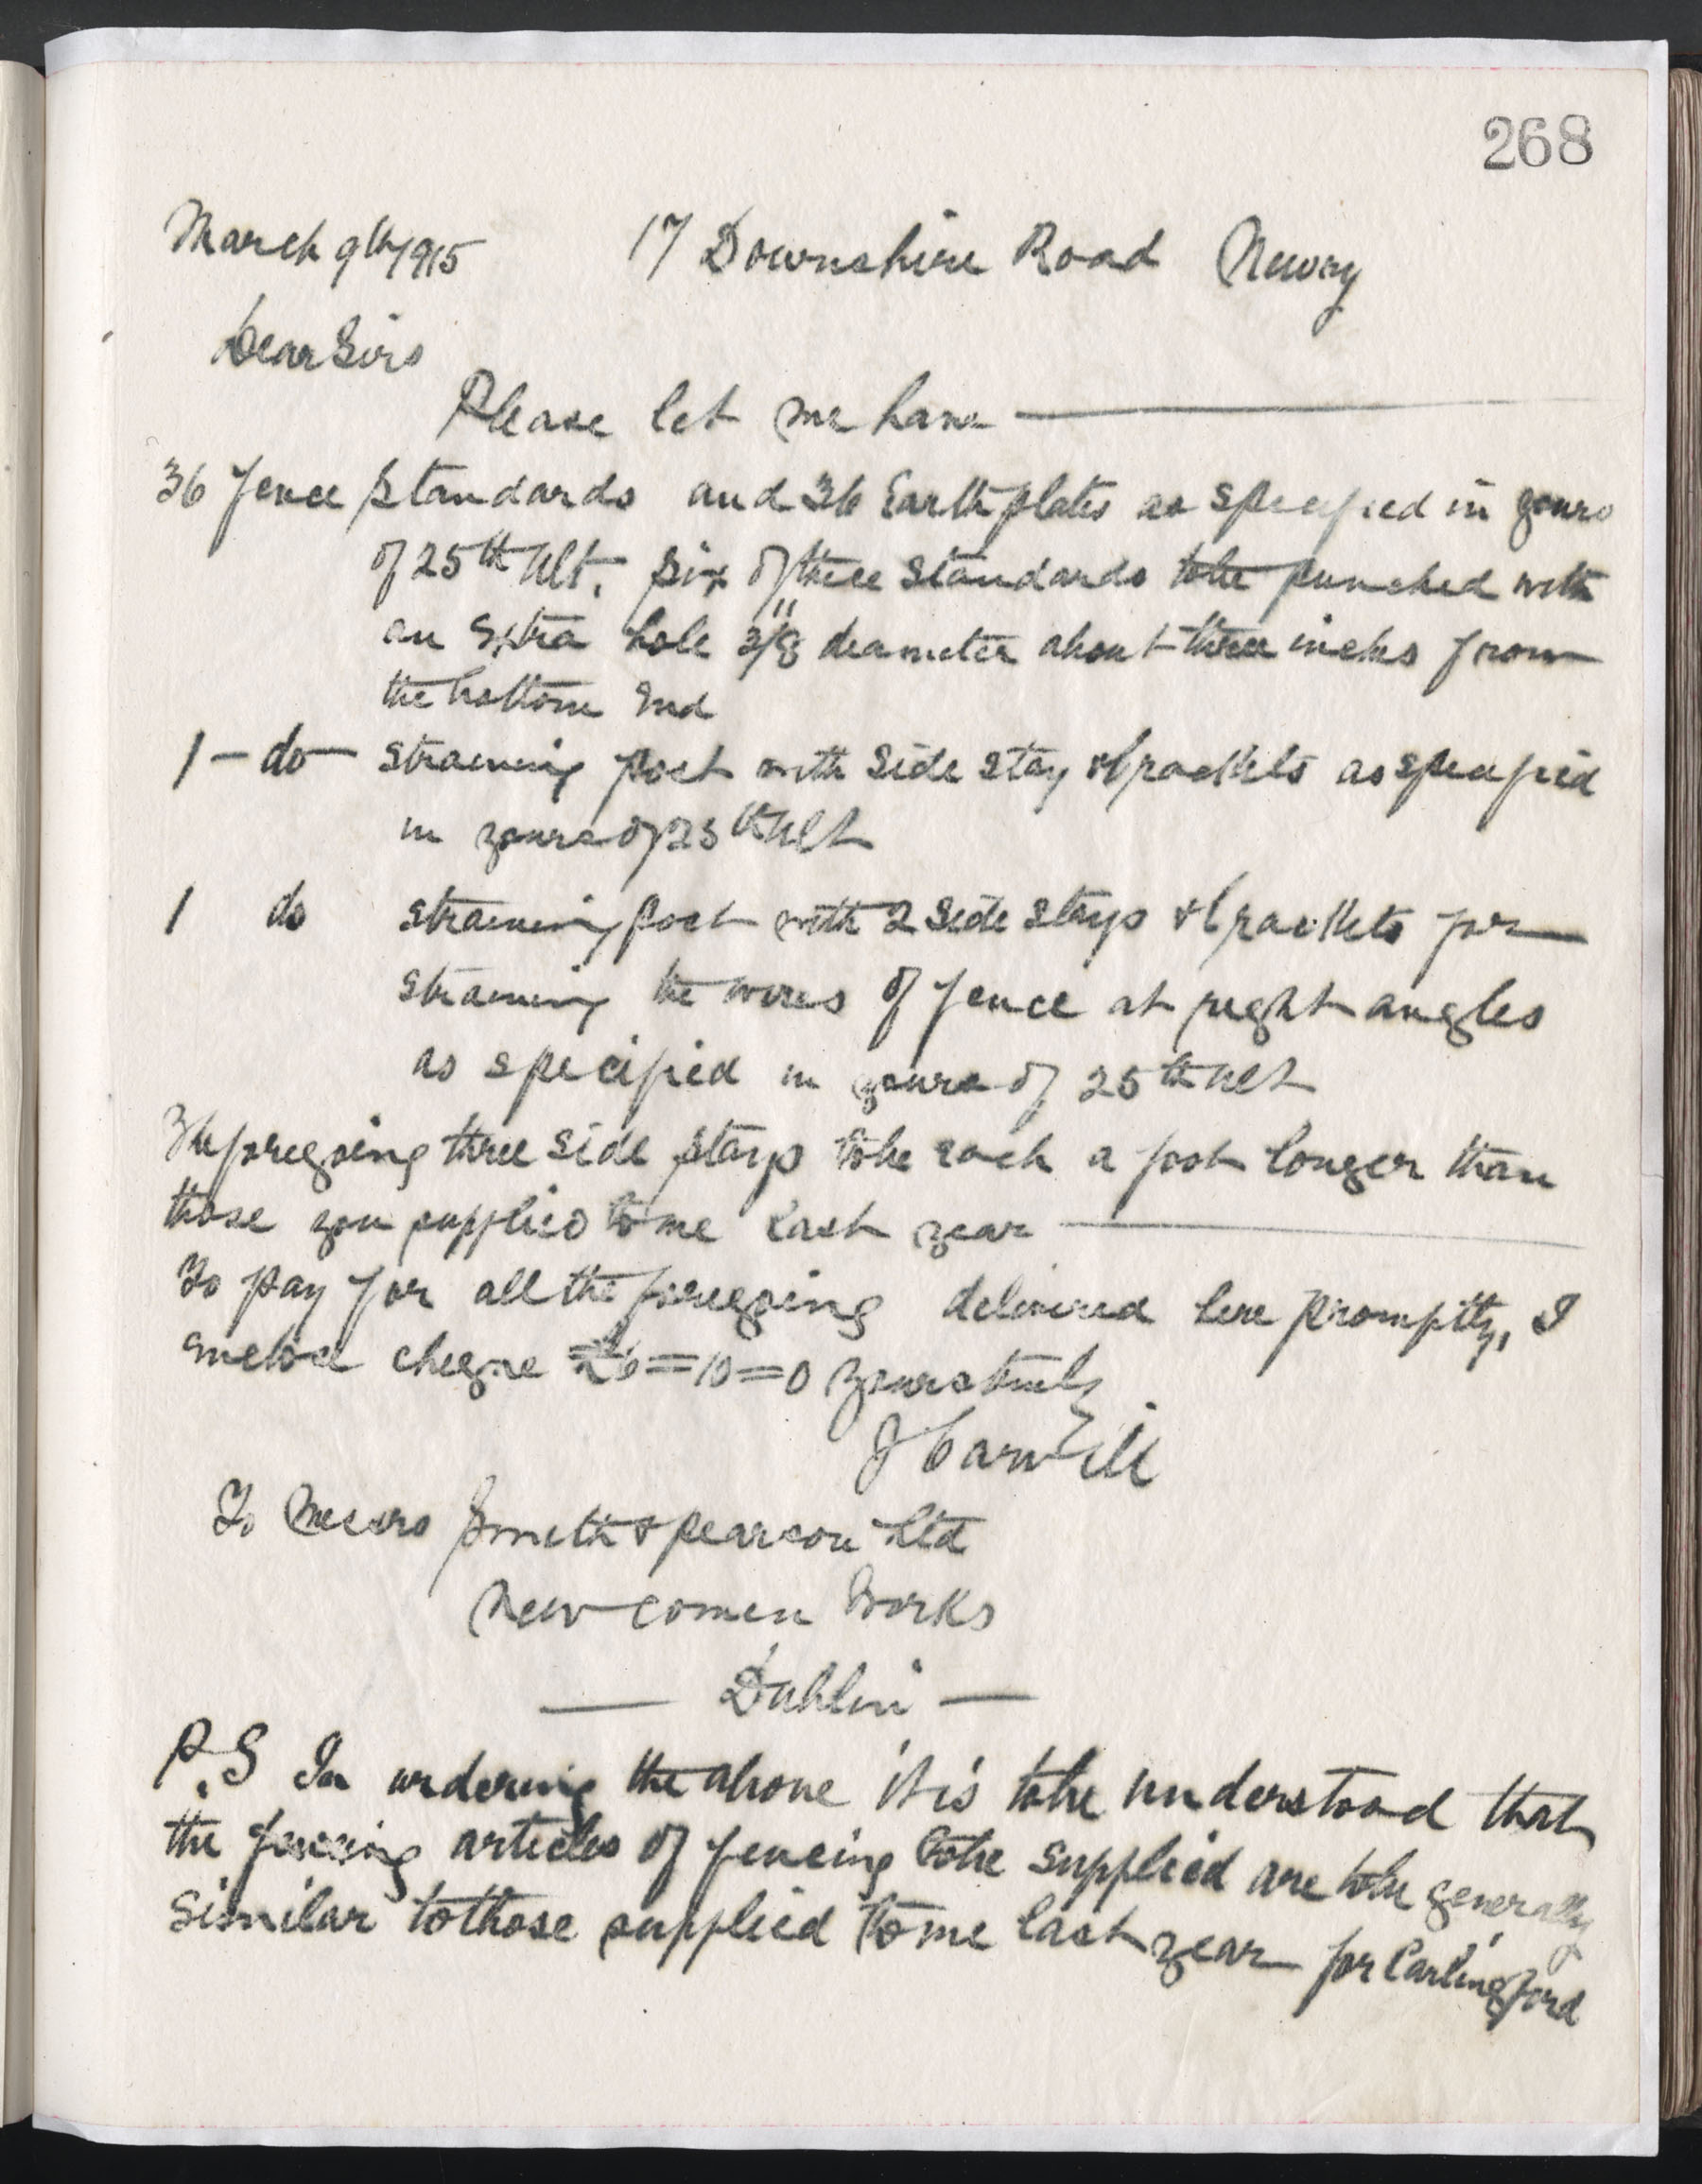 268
March 9th/1915 17 Downshire Road Newry
Dear Sirs
Please let me have
36 fence standards and 36 Earth plates as specified in yours
of 25th Ult. six of these standards to be punched with
an Extra hole 3/8" deameter about three inches from
the bottom End
1 - do - straining post with side stay & brackets as specified
in yours of 25th Ult
1 do straining post with 2 side stays & brackets for
straining the wires of fence at right angles
as specified in yours of 25th Ult
The foregoing three side stays to be each a foot longer than
those you supplied to me last year
To pay for all the foregoing delivered here promptly, I
Enclose cheque £6=10=0 yours truly
J Carvill
To Messrs Smith & Pearson Ltd
New comen Works
Dublin
P.S In ordering the above it is to be understood that
the articles of fencing to be supplied are to be generally
similar to those supplied to me last year for Carlingford